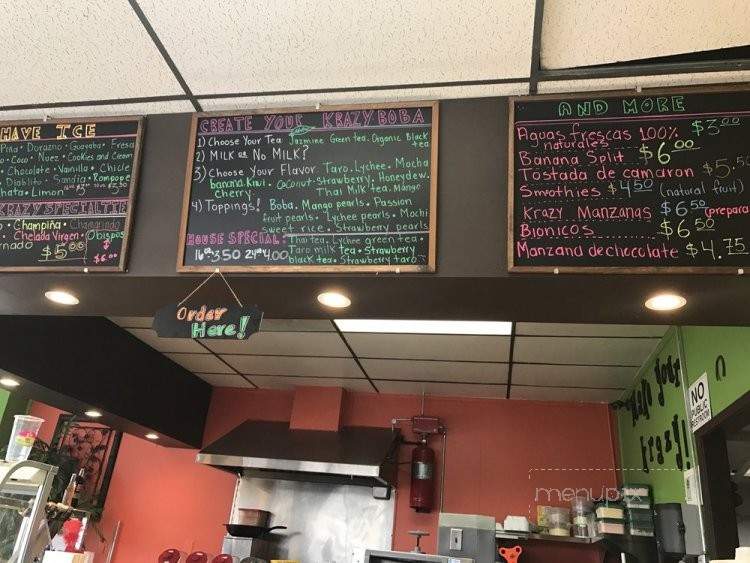 HAVE ICE
Piña • Durazno • Guayaba • Fresa
• Coco • Nuez • Cookies and Cream
• Chocolate • Vainilla • Chicle
• Diablito • Sandia • Rompope
hata • Limon
KRAZY SPECIALTIE
• Champiña • Chamarindo
• Chelada Virgen • Obispos
$5.00 $6.00
CREATE YOUR KRAZY BOBA
1) Choose Your Tea Jazmine Green tea • Organic Black tea
2) MILK or No MILK?
3) Choose Your Flavor Taro • Lychee • Mocha
banana • Kiwi • Coconut • Strawberry • Honeydew •
Cherry • Thai Milk tea • Mango
4) Toppings! Boba • Mango pearls • Passion
fruit pearls • Lychee pearls • Mochi
sweet rice • Strawberry pearls
HOUSE SPECIAL: Thai tea • Lychee green tea •
Taro milk tea • Strawberry
black tea • Strawberry taro
16oz 3.50 24oz 4.00
AND MORE
Aguas frescas 100% naturales $3.00
Banana Split $6.00
Tostada de camaron $5.5
Smoothies $4.50 (natural fruit)
Krazy Manzanas $6.50 (prepara
Bionicos $6.50
Manzana de chocolate $4.75
Order
Here!
your
krazy!
NO
PUBLIC
RESTROOM
menupix